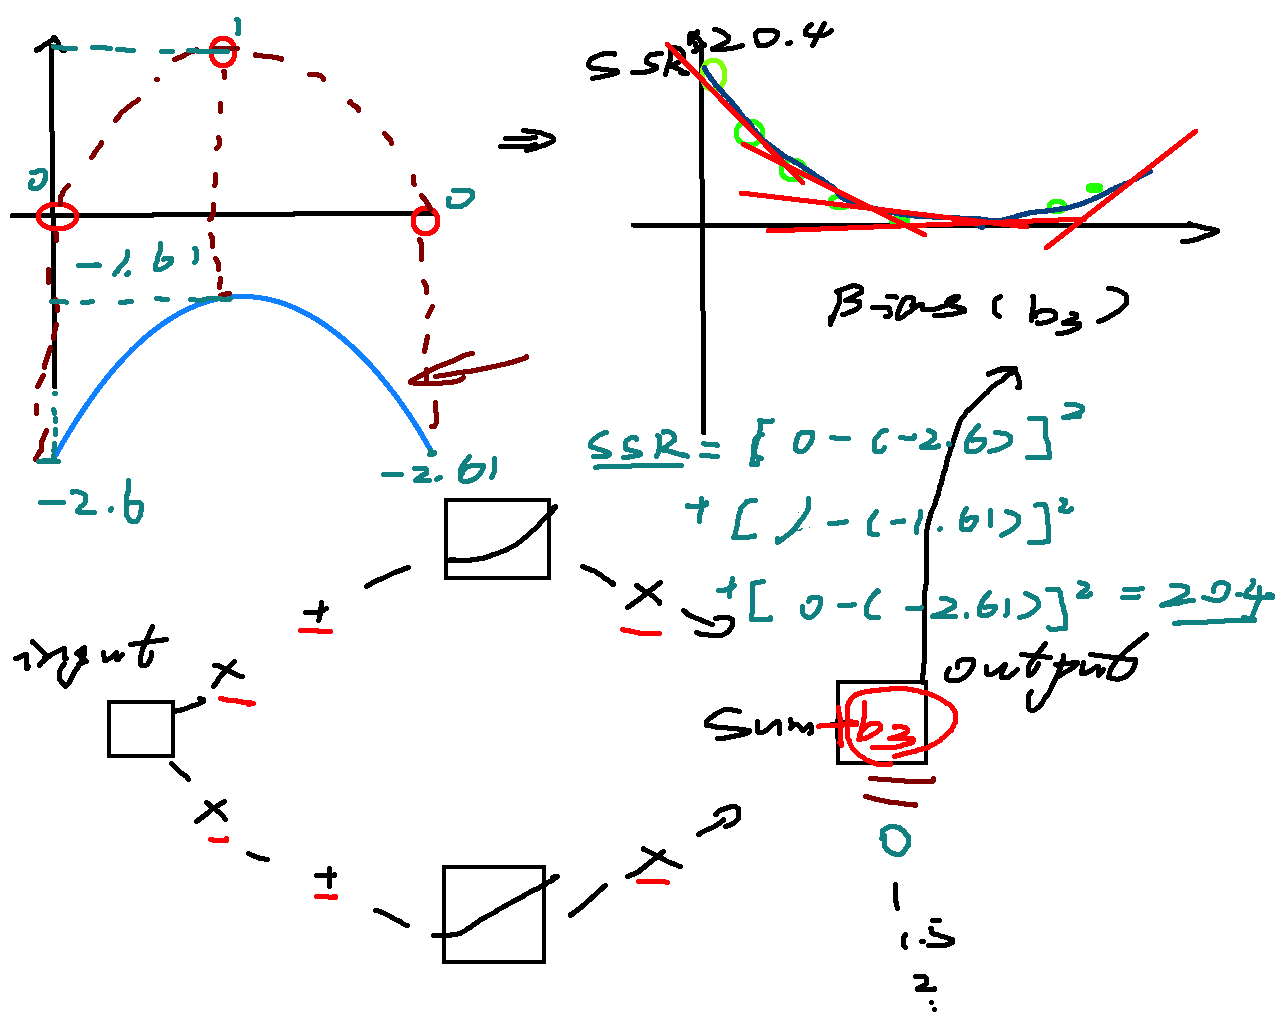 1
0
0
-1.61
-2.6
-2.61
SSR
20.4
Bias (b3)
SSR = [0-(-2.6)]²
+ [1-(-1.61)]²
+ [0-(-2.61)]² = 20.4
input
x
+
x
x
+
x
Sum
+b3
output
0
1
1.5
2
: